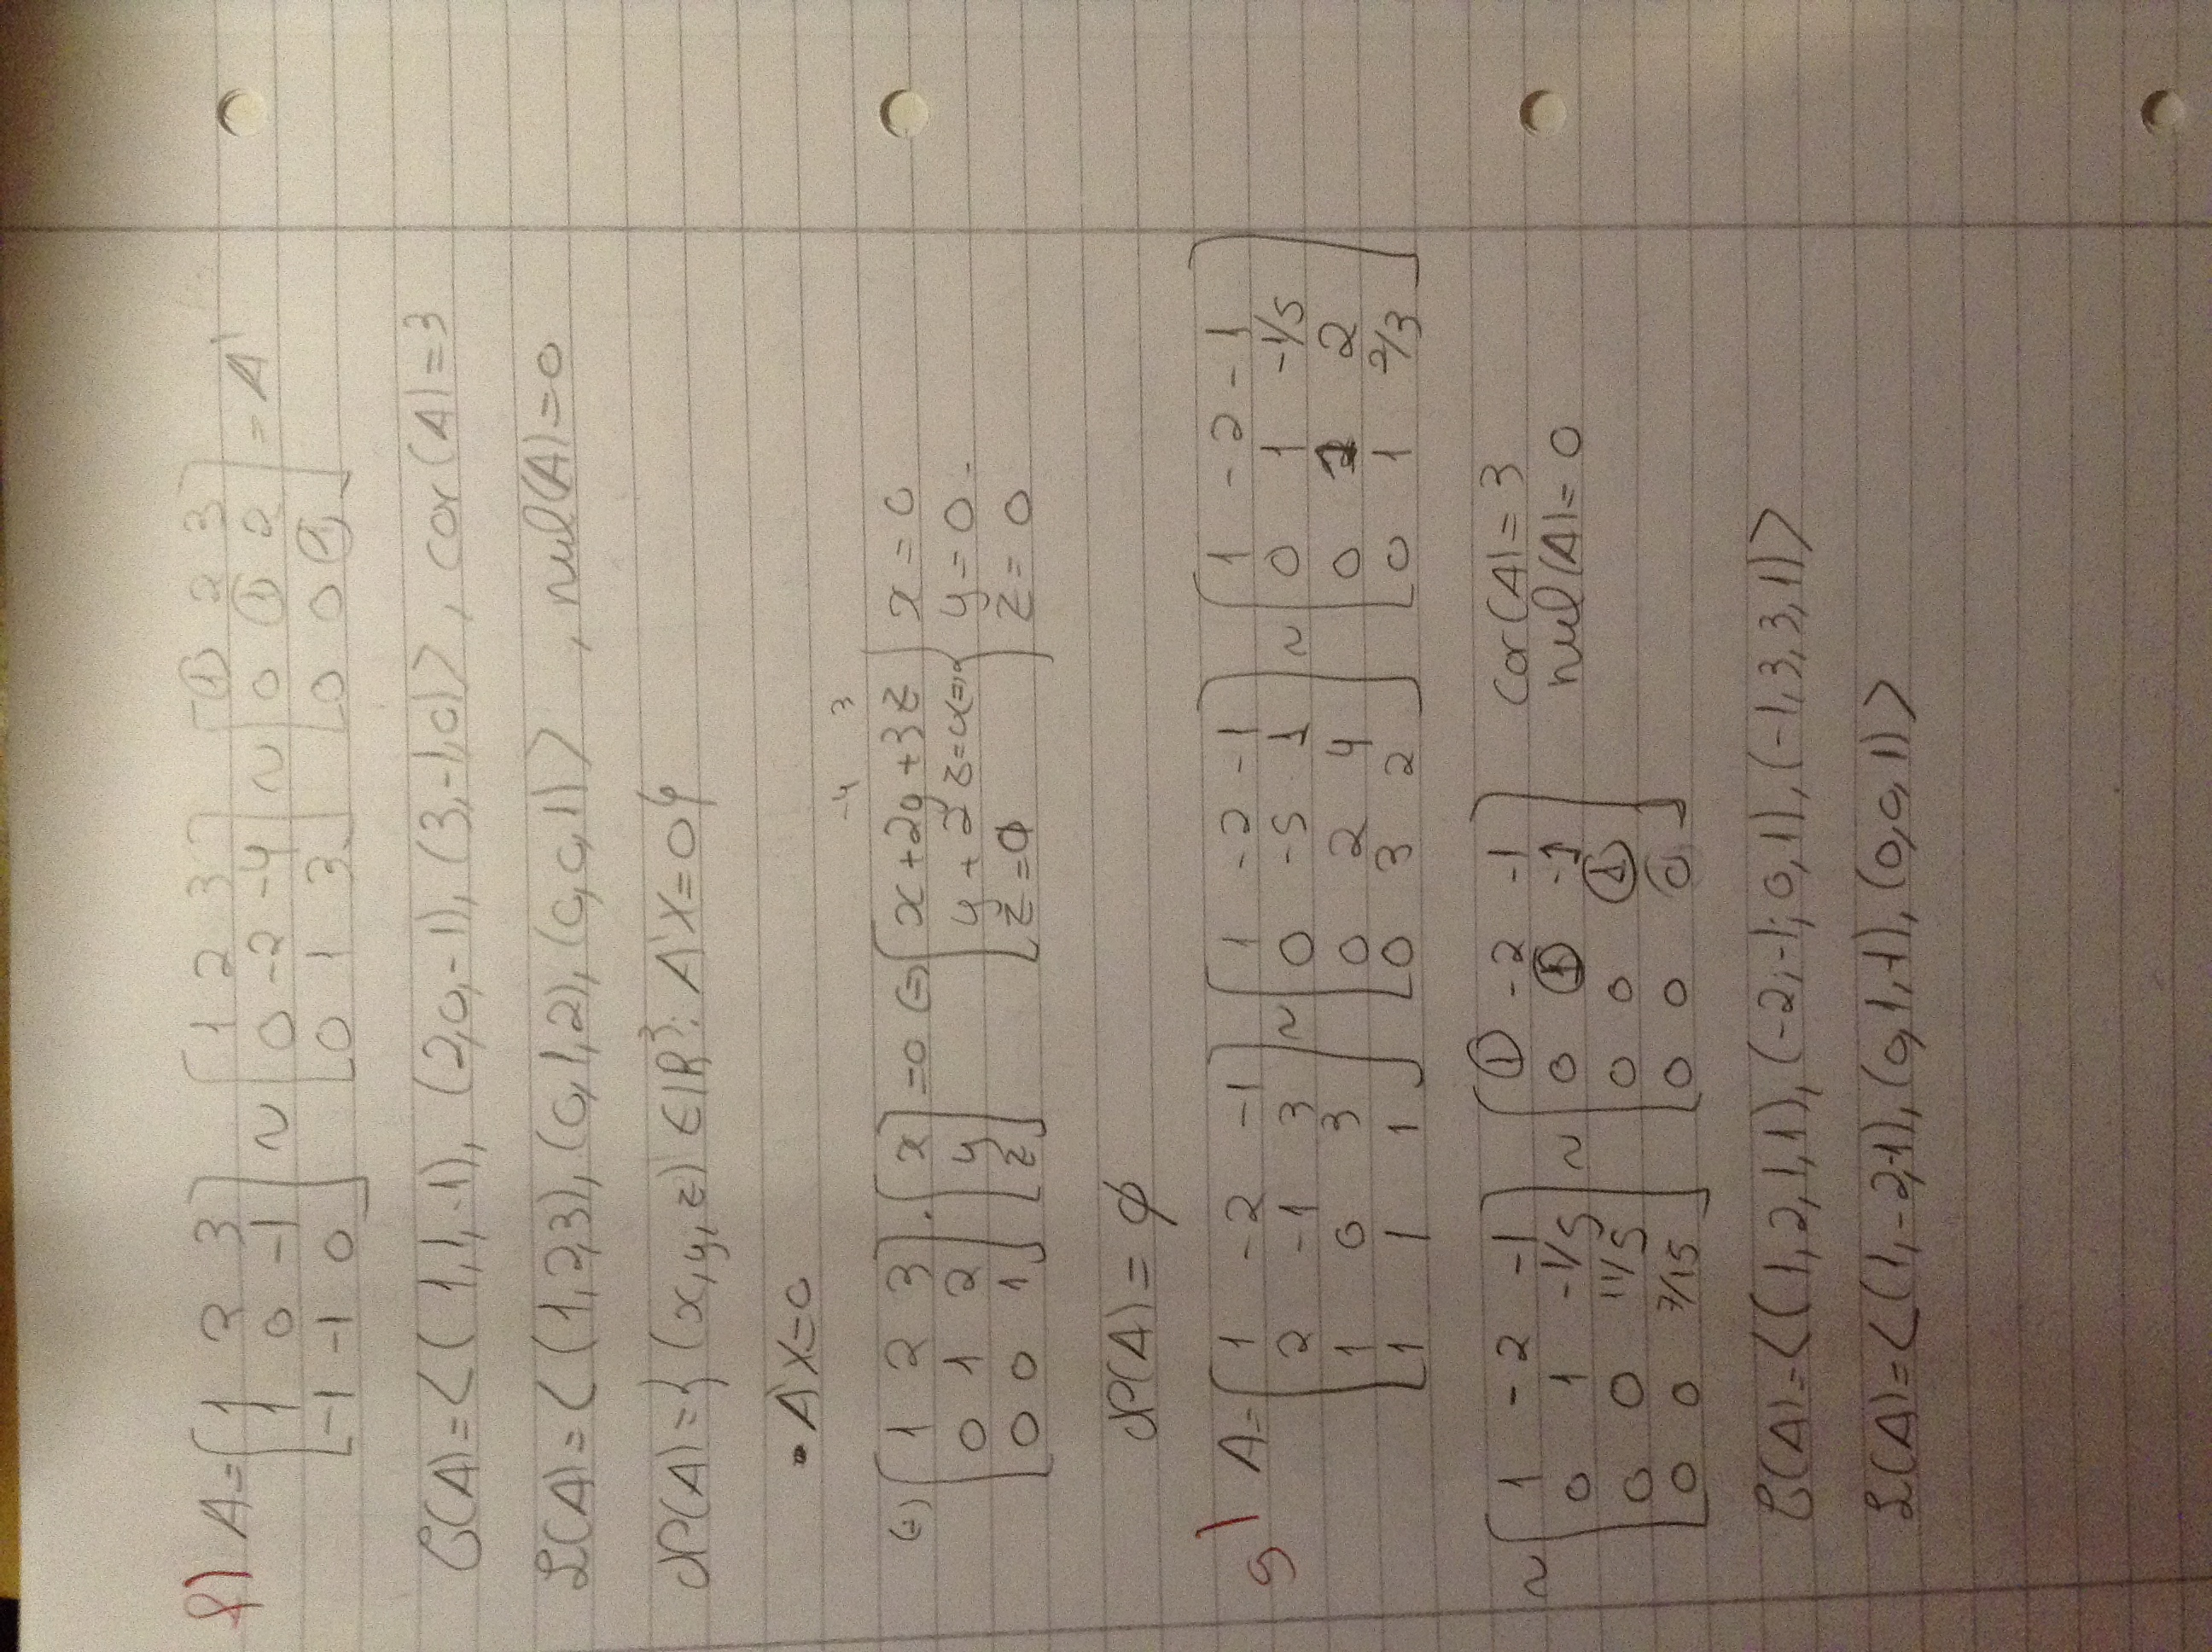 f) A = [1 2 3; 1 0 -1; -1 -1 0] ~ [1 2 3; 0 -2 -4; 0 1 3] ~ [1 2 3; 0 1 2; 0 0 1] = A'
C(A) = < (1,1,-1), (2,0,-1), (3,-1,0) > , car(A) = 3
L(A) = < (1,2,3), (0,1,2), (0,0,1) > , nul(A) = 0
N(A) = { (x,y,z) ∈ IR³: A'X = 0 }
• A'X = 0
-4 3
(=) [1 2 3; 0 1 2; 0 0 1] . [x; y; z] = 0 (=) [x + 2y + 3z; y + 2z = 0; z = 0 (=) { x = 0; y = 0; z = 0
N(A) = ∅
g) A = [1 -2 -1; 2 -1 3; 1 0 3; 1 1 1] ~ [1 -2 -1; 0 -5 1; 0 2 4; 0 3 2] ~ [1 -2 -1; 0 1 -1/5; 0 1 2; 0 1 2/3]
~ [1 -2 -1; 0 1 -1/5; 0 0 11/5; 0 0 7/15] ~ [1 -2 -1; 0 1 -1; 0 0 1; 0 0 0] car(A) = 3
nul(A) = 0
C(A) = < (1,2,1,1), (-2,-1,0,1), (-1,3,3,1) >
L(A) = < (1,-2,-1), (0,1,-1), (0,0,1) >